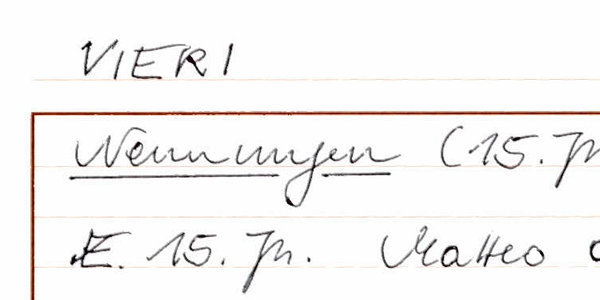 VIERI
Nennungen (15. Jh
E. 15. Jh. Matteo